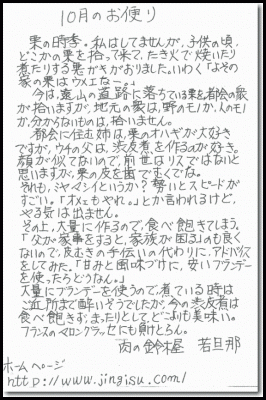 10月のお便り
栗の時季。私はしてませんが、子供の頃、
どこかの栗を拾って来て、たき火で焼いたり
煮たりする悪ガキがおりました。いわく「よその
家の栗はウメェなー。」
今は、遠山の道路に落ちている栗を都会の親
が拾いますが、地元の爺は、野のモノか、人のモノ
か、分からないものは、拾いません。
都会に住む姉は、栗のオハギが大好き
ですが、ウチの父は、渋皮煮を作るのが好き。
顔が似てないので、前世はリスではないと
思いますが、栗の皮を歯でむくでな。
それも、ジャマシイというか?勢いとスピードが
すごい。「オメェもやれ。」とか言われるけど、
やる気は出ません。
その上、大量に作るので、食べ飽きてしまう。
「父が家事をすると、家族が困る」のも良く
ないので、皮むきの手伝いの代わりに、アドバイス
をしてみた。「甘みと風味づけに、安いブランデー
を使ったらどうなん。」
大量にブランデーを使うので、煮ている時は
ご近所まで酔いそうでしたが、今の渋皮煮は
食べ飽きず、まったりとして、どこよりも美味い。
フランスのマロングラッセにも負けとらん。
肉の鈴木屋 若旦那
ホームページ
http://www.jingisu.com/